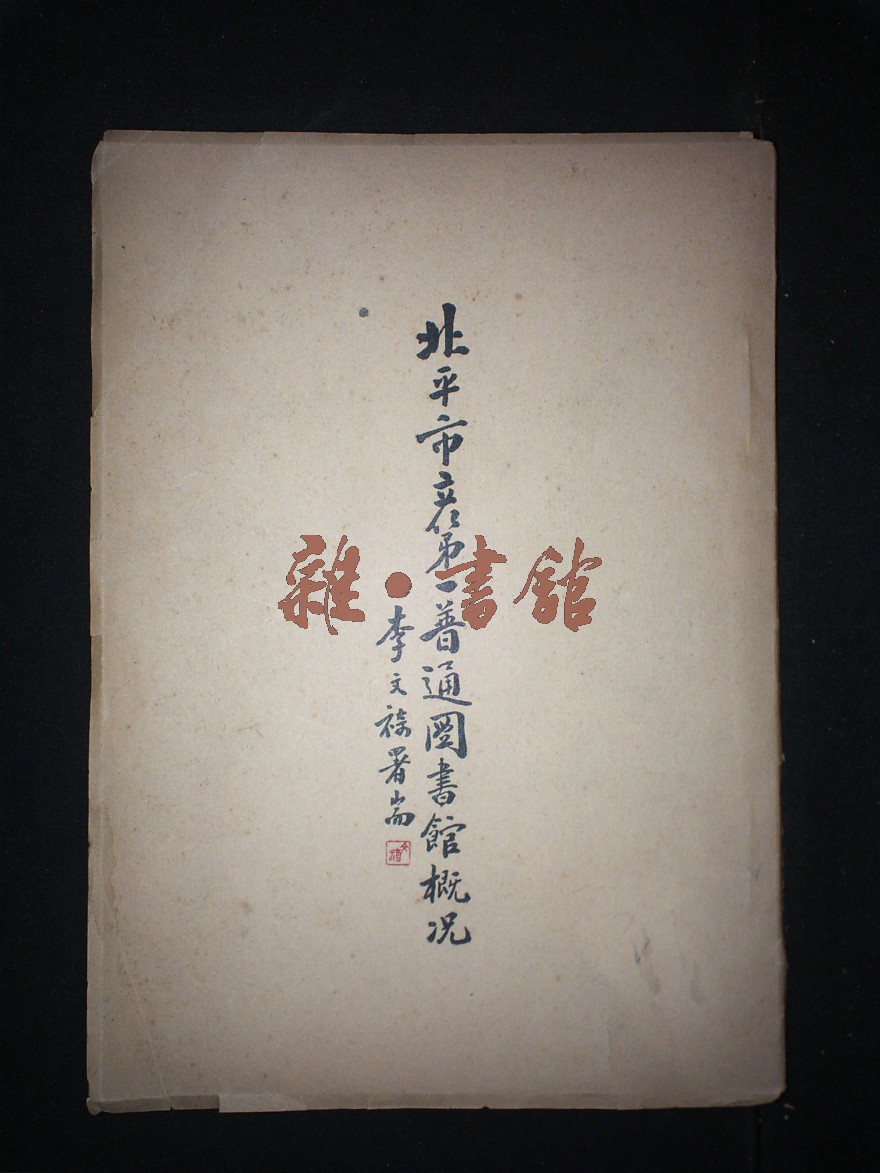 北平市立第一普通圖書館概况
李文裿署耑
雜·書館